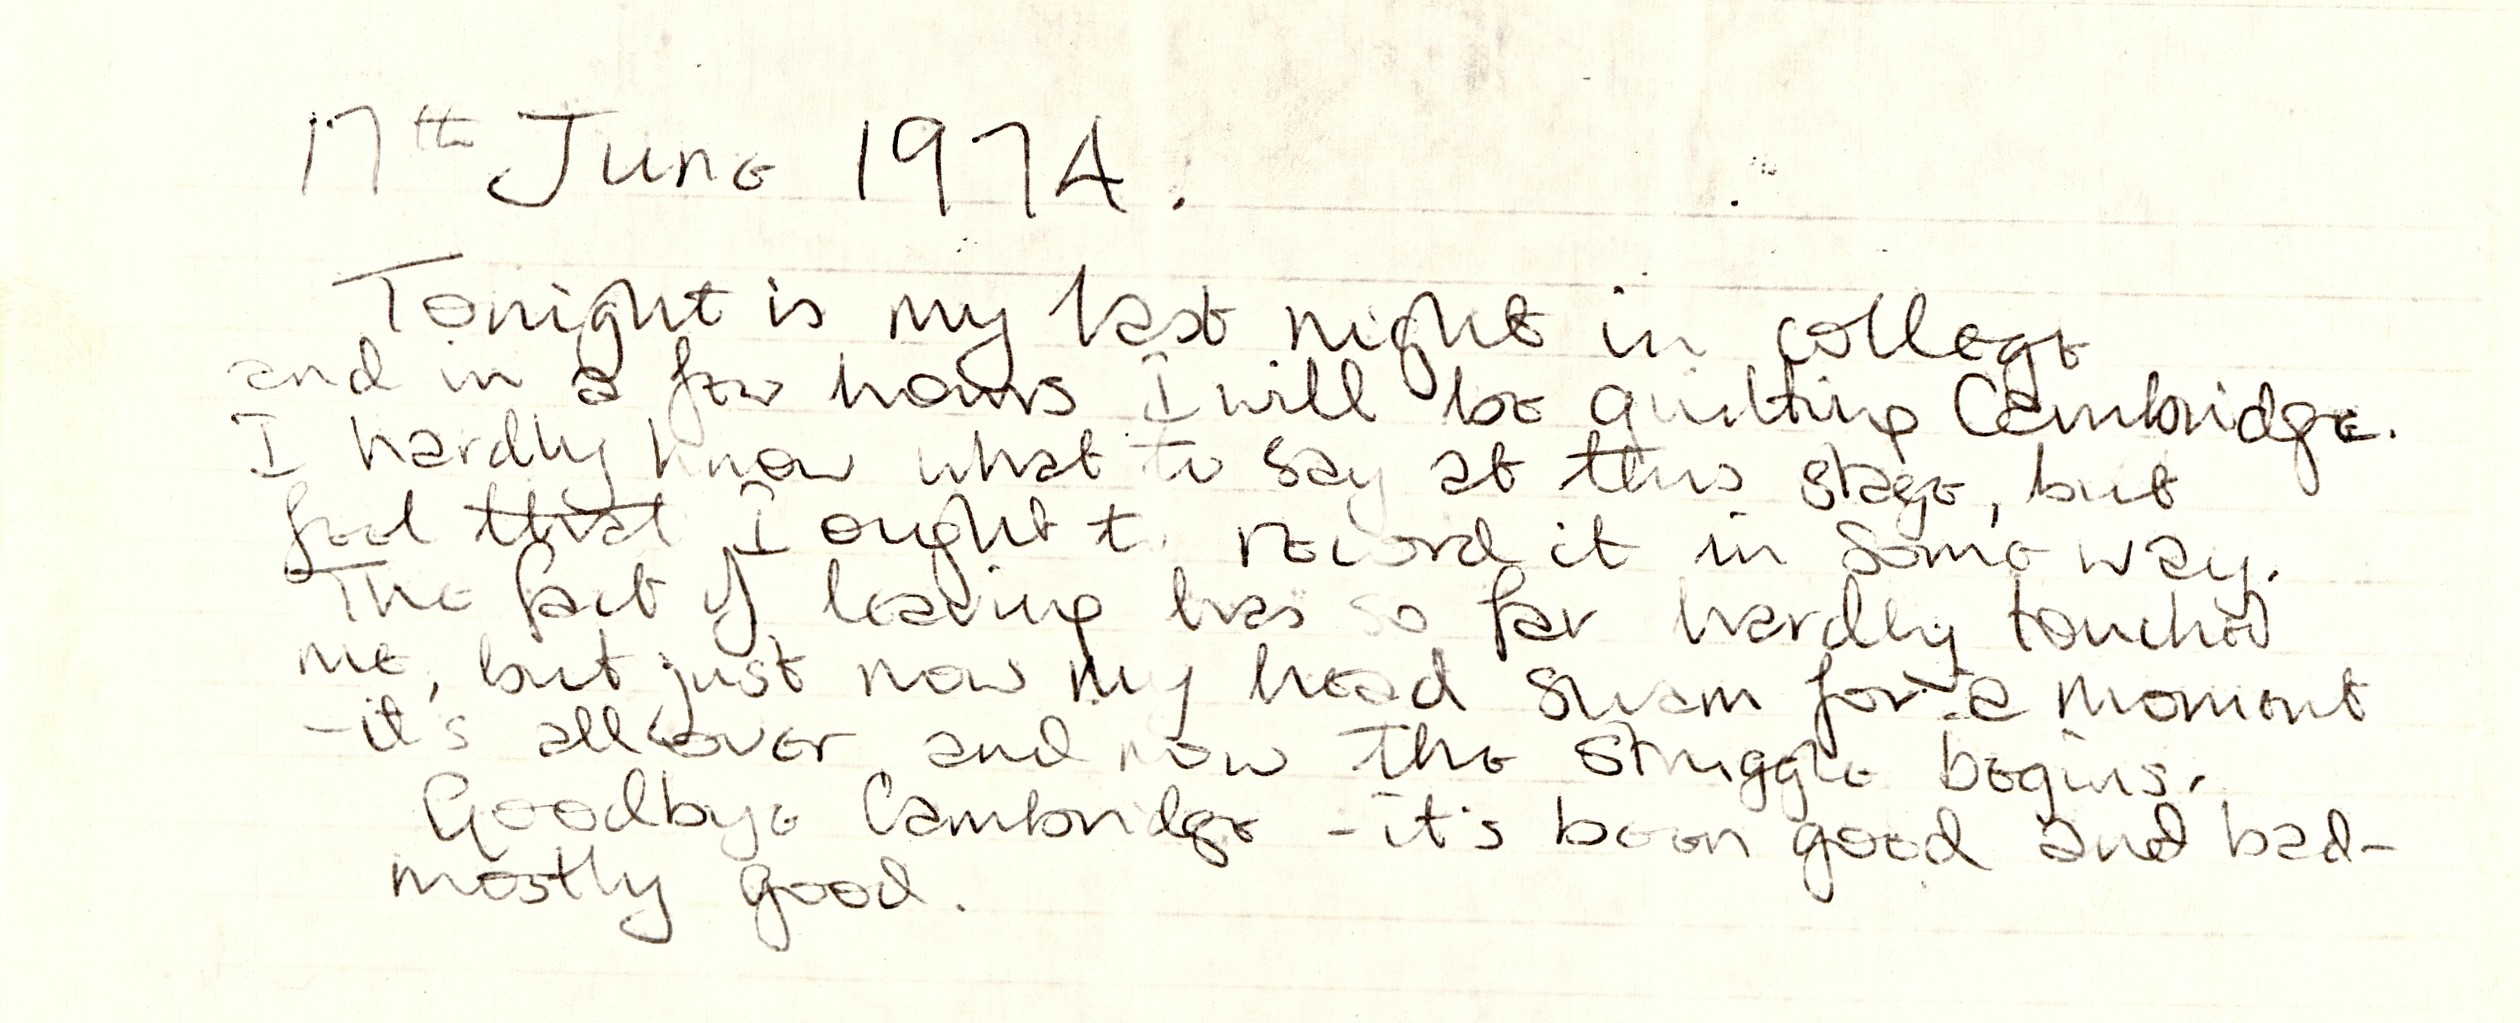 17th June 1974.
Tonight is my last night in college
and in a few hours I will be quitting Cambridge.
I hardly know what to say at this stage, but
feel that I ought to record it in some way.
The fact of leaving has so far hardly touched
me, but just now my head swam for a moment
- it's all over and now the struggle begins.
Goodbye Cambridge - it's been good and bad -
mostly good.